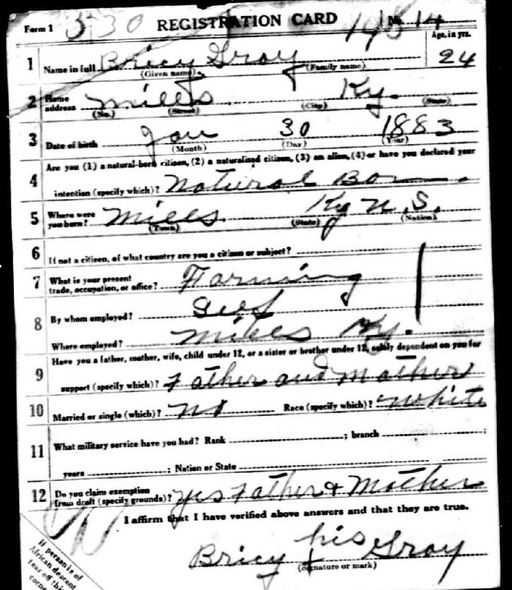 Form 1 530 REGISTRATION CARD No. 14
Age, in yrs.
1 Name in full Bricy Gray 24
(Given name) (Family name)
2 Home address Mills Ky.
(No.) (Street) (City) (State)
3 Date of birth Jan 30 1883
(Month) (Day) (Year)
4 Are you (1) a natural-born citizen, (2) a naturalized citizen, (3) an alien, (4) or have you declared your
intention (specify which)? Natural Born
5 Where were you born? Mills Ky U.S.
(Town) (State) (Nation)
6 If not a citizen, of what country are you a citizen or subject?
7 What is your present trade, occupation, or office? Farming
8 By whom employed? Self
Where employed? Mills Ky.
9 Have you a father, mother, wife, child under 12, or a sister or brother under 12, solely dependent on you for
support (specify which)? Father and Mother
10 Married or single (which)? No Race (specify which)? White
11 What military service have you had? Rank ; branch
years ; Nation or State
12 Do you claim exemption from draft (specify grounds)? Yes Father & Mother
I affirm that I have verified above answers and that they are true.
Bricy his Gray
(Signature or mark)
If person is of
African descent
tear off this
corner